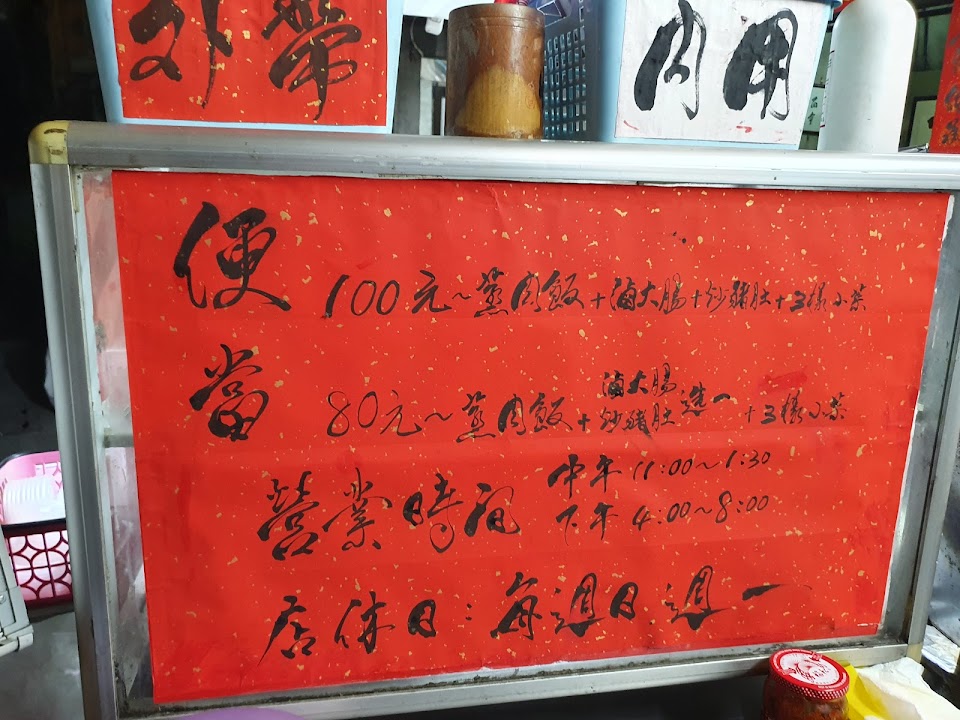 外帶
內用
便當
100元~蒸肉飯+滷大腸+炒豬肚+三樣小菜
80元~蒸肉飯+滷大腸炒豬肚選一+三樣小菜
營業時間
中午 11:00~1:30
下午 4:00~8:00
店休日:每週日.週一